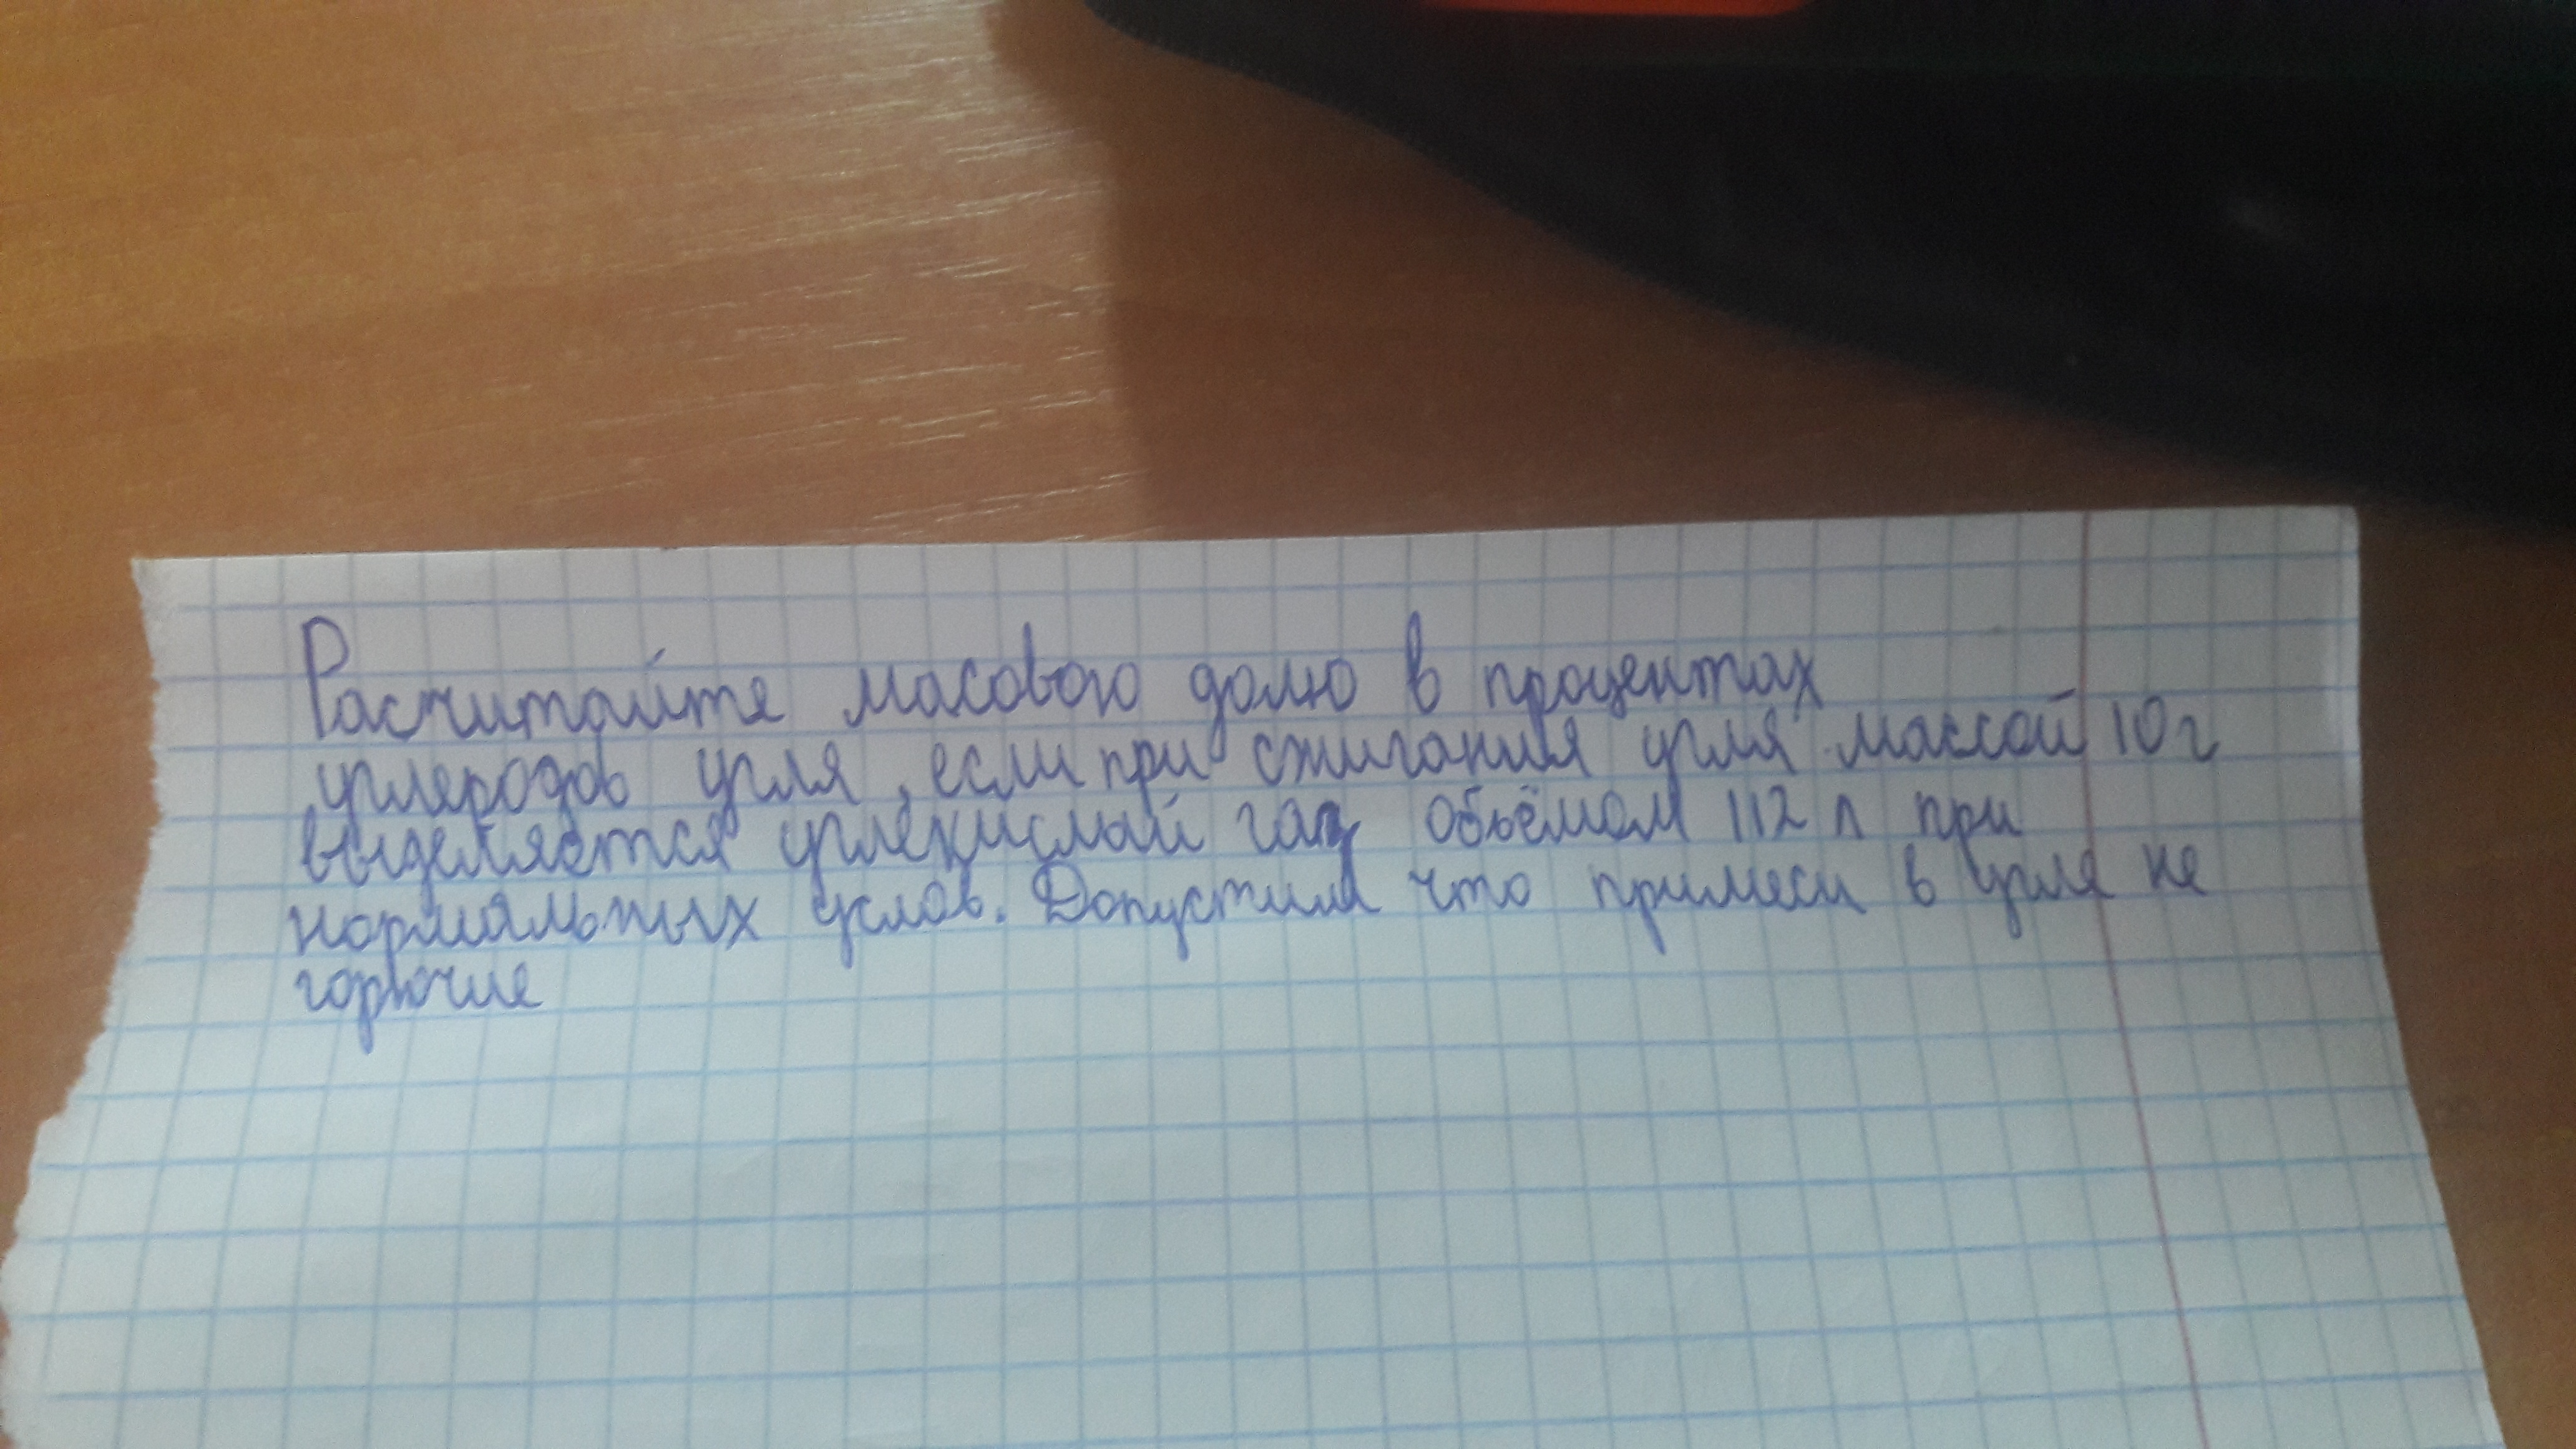 Расчитайте масовою долю в процентах
углеродов угля, если при сжигания угля массой 10г
выделяется углекислый газ объёмом 112 л при
нормальных услов. Допустим что примеси в угля не
горючие